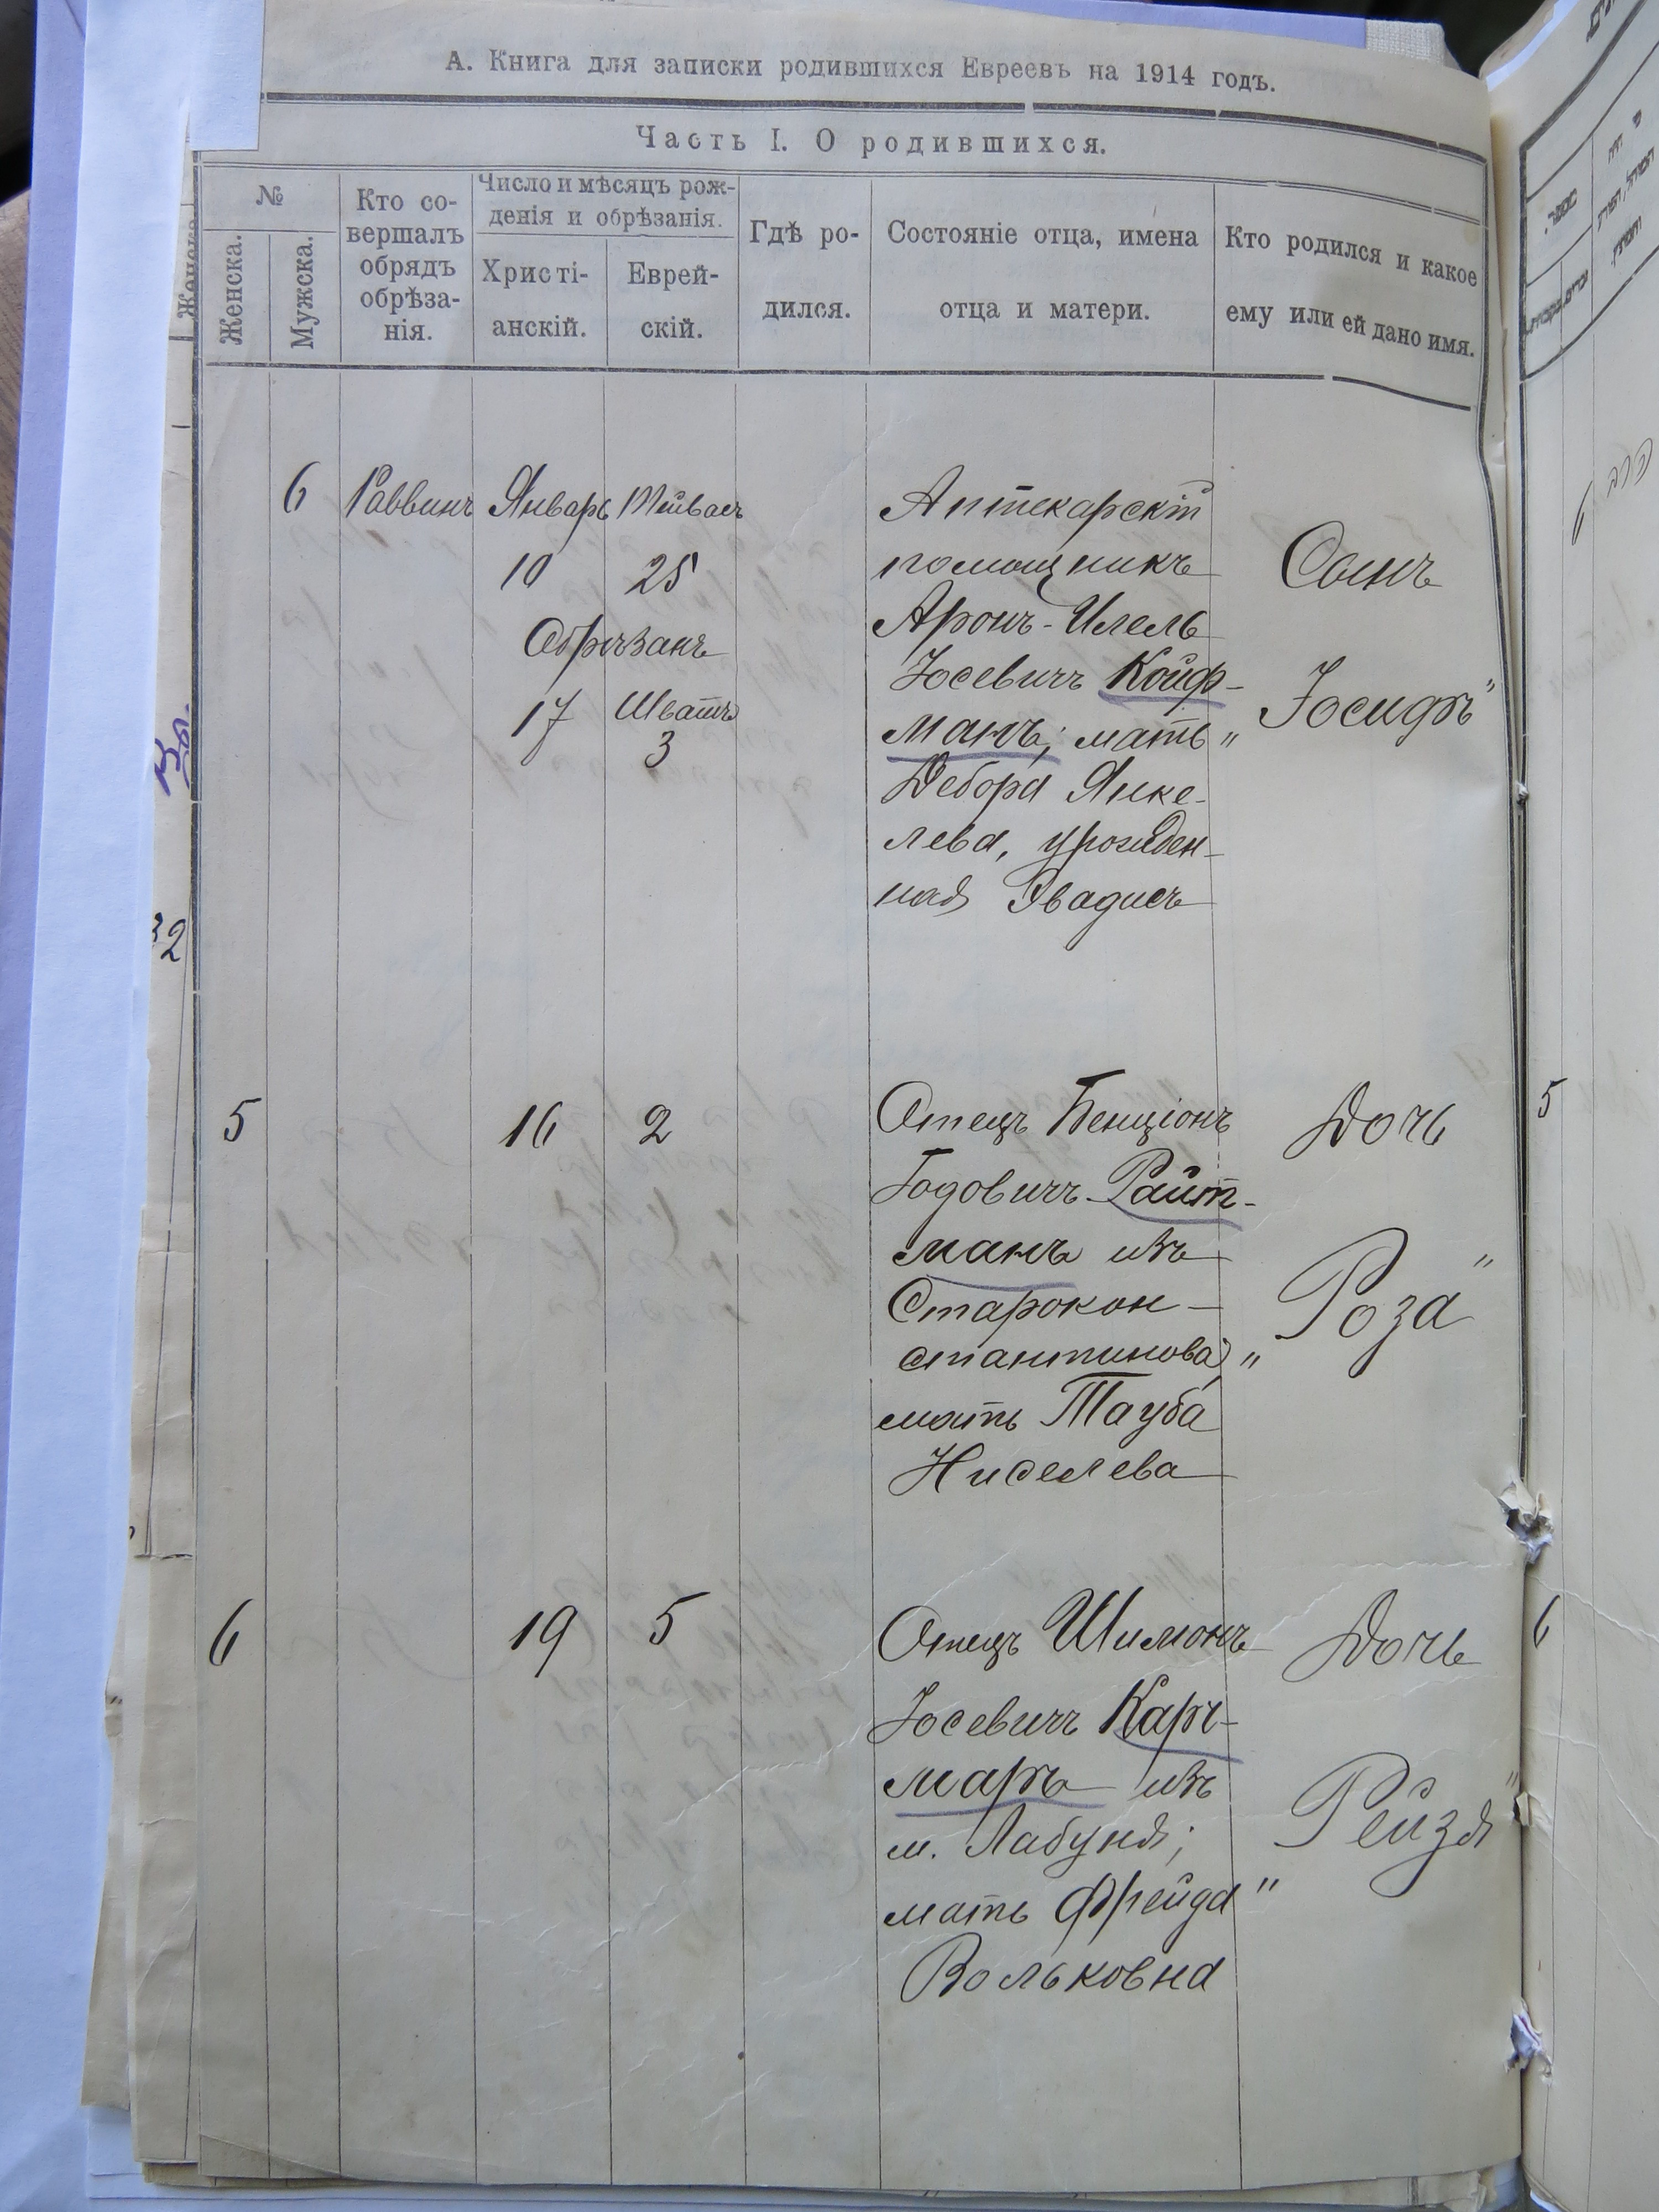 А. Книга для записки родившихся Евреевъ на 1914 годъ.
Часть I. О родившихся.
№
Женска.
Мужска.
Кто со-
вершалъ
обрядъ
обрѣза-
нія.
Число и мѣсяцъ рож-
денія и обрѣзанія.
Христі-
анскій.
Еврей-
скій.
Гдѣ ро-
дился.
Состояніе отца, имена
отца и матери.
Кто родился и какое
ему или ей дано имя.
6 Раввинъ Январь Тейвасъ
10 25
Обрѣзанъ
17 Шватъ
3
Аптекарскій
помощникъ
Аронъ-Илель
Іосевичъ Койф-
манъ; мать
Дебора Янке-
лева, урожден-
ная Эвадисъ
Сынъ
„Іосифъ"
5 16 2
Отецъ Бенціонъ
Годовичъ Райт-
манъ изъ
Старокон-
стантинова,
мать Тауба
Киселева
Дочь
„Роза"
5
6 19 5
Отецъ Шимонъ
Іосевичъ Карч-
маръ изъ
м. Лабуня;
мать Фрейда
Вольковна
Дочь
"Рейзя"
6
32